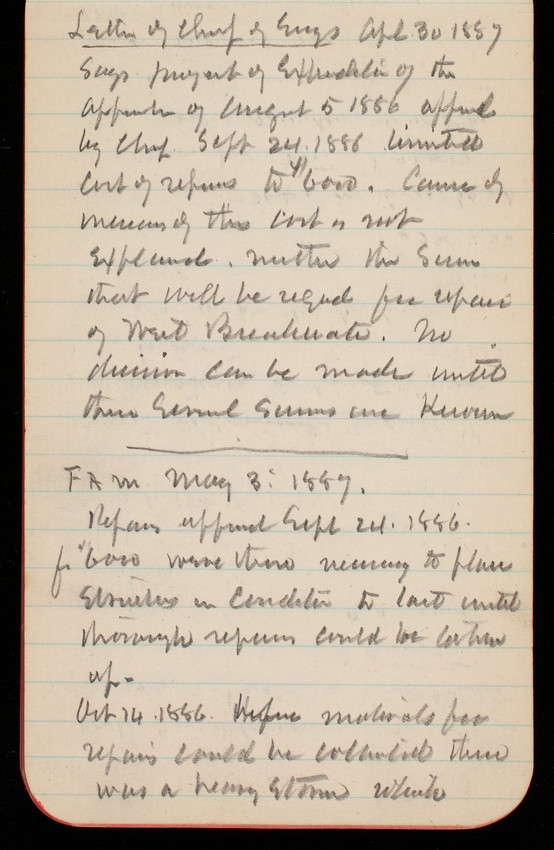 Letter of Chief of Engrs Apl 30 1887
Says project of Expenditure of the
Appn of August 5 1886 approved
by Chief Sept 24. 1886 limited
Cost of repairs to $6000. Cause of
increase of this cost is not
Explained. neither the Sum
that will be reqd for repair
of West Breakwater. No
decision can be made until
these several sums are Known
May 3: 1887.
Repairs approved Sept 24. 1886.
for $6000 were those necessary to place
Structure in Condition to last until
thorough repairs could be taken
up-
Oct 14. 1886. Before materials for
repairs could be collected there
was a heavy Storm which